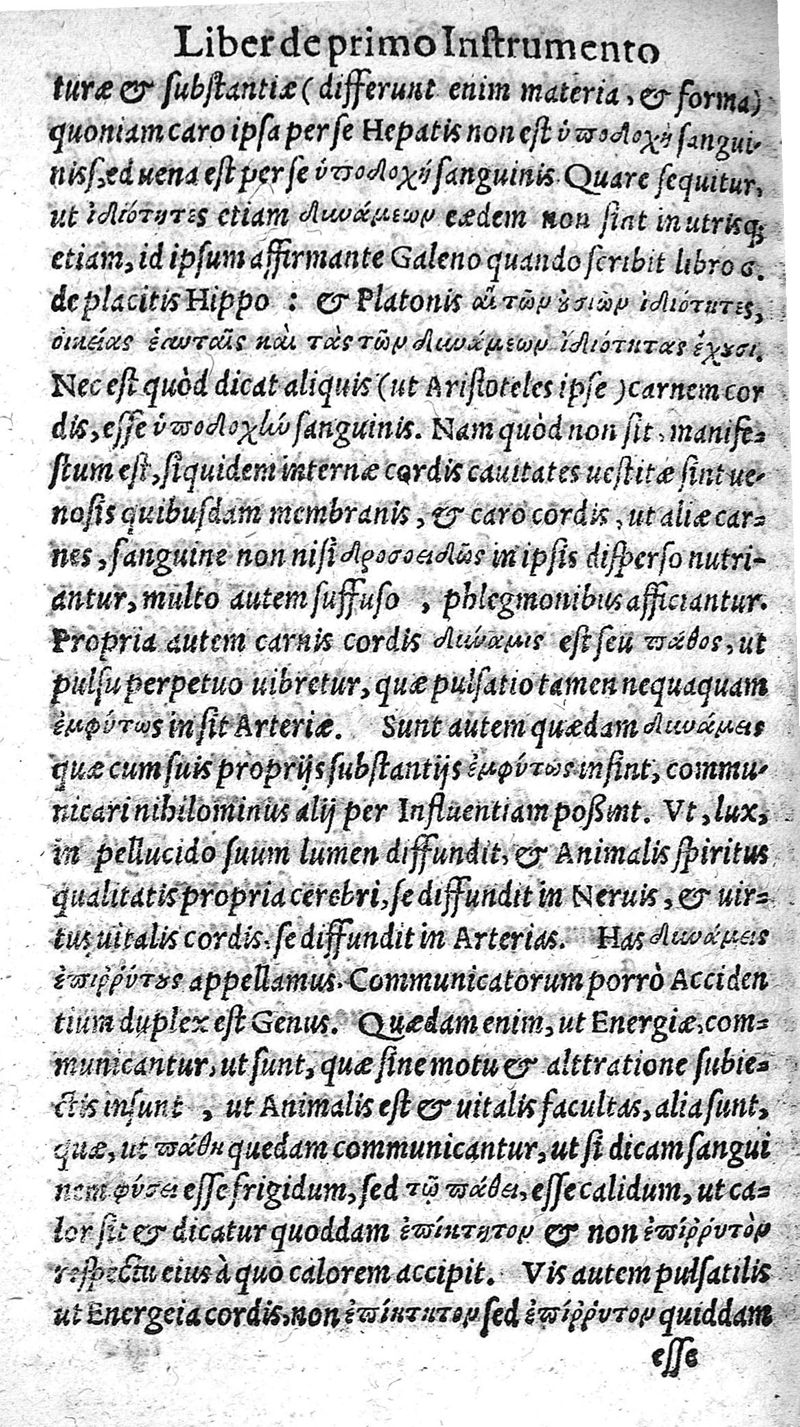 Liber de primo Instrumento
turæ & substantiæ ( differunt enim materia, & forma)
quoniam caro ipsa per se Hepatis non est ὑποδοχὴ sangui-
niss,ed uena est per se ὑποδοχὴ sanguinis. Quare sequitur,
ut ἰδιότητες etiam δυνάμεων eædem non sint in utrisq;
etiam, id ipsum affirmante Galeno quando scribit libro 6.
de placitis Hippo : & Platonis αἱ τῶν οὐσιῶν ἰδιότητες,
οἰκείας ἑαυταῖς καὶ τὰς τῶν δυνάμεων ἰδιότητας ἔχουσι.
Nec est quòd dicat aliquis (ut Aristoteles ipse ) carnem cor
dis, esse ὑποδοχὴν sanguinis. Nam quòd non sit, manife-
stum est, siquidem internæ cordis cauitates uestitæ sint ue-
nosis quibusdam membranis, & caro cordis, ut aliæ car-
nes, sanguine non nisi δροσοειδῶς in ipsis disperso nutri-
antur, multo autem suffuso , phlegmonibus afficiantur.
Propria autem carnis cordis δύναμις est seu πάθος, ut
pulsu perpetuo uibretur, quæ pulsatio tamen nequaquam
ἐμφύτως insit Arteriæ. Sunt autem quædam δυνάμεις
quæ cum suis proprijs substantijs ἐμφύτως insint, commu-
nicari nihilominus alij per Influentiam possint. Vt, lux,
in pellucido suum lumen diffundit, & Animalis spiritus
qualitatis propria cerebri, se diffundit in Neruis, & uir-
tus uitalis cordis, se diffundit in Arterias. Has δυνάμεις
ἐπιῤῥύτους appellamus. Communicatorum porrò Acciden
tium duplex est Genus. Quædam enim, ut Energiæ, com-
municantur, ut sunt, quæ sine motu & alttratione subie-
ctis insunt , ut Animalis est & uitalis facultas, alia sunt,
quæ, ut πάθη quedam communicantur, ut si dicam sangui
nem φύσει esse frigidum, sed τῷ πάθει, esse calidum, ut ca-
lor sit & dicatur quoddam ἐπίκτητον & non ἐπίῤῥυτὸν
respectu eius à quo calorem accipit. Vis autem pulsatilis
ut Energeia cordis, non ἐπίκτητον sed ἐπίῤῥυτον quiddam
esse